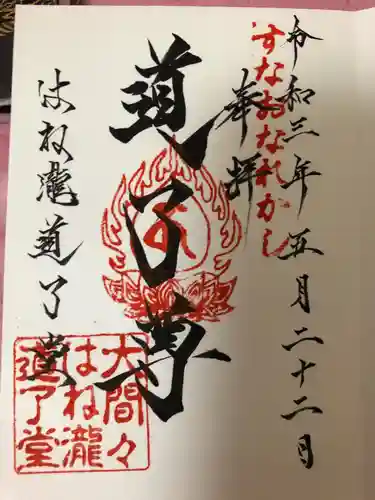 令和三年五月二十二日
すなおなれかし
奉拝
道了尊
瀧道了堂
大間々
はね瀧
道了堂